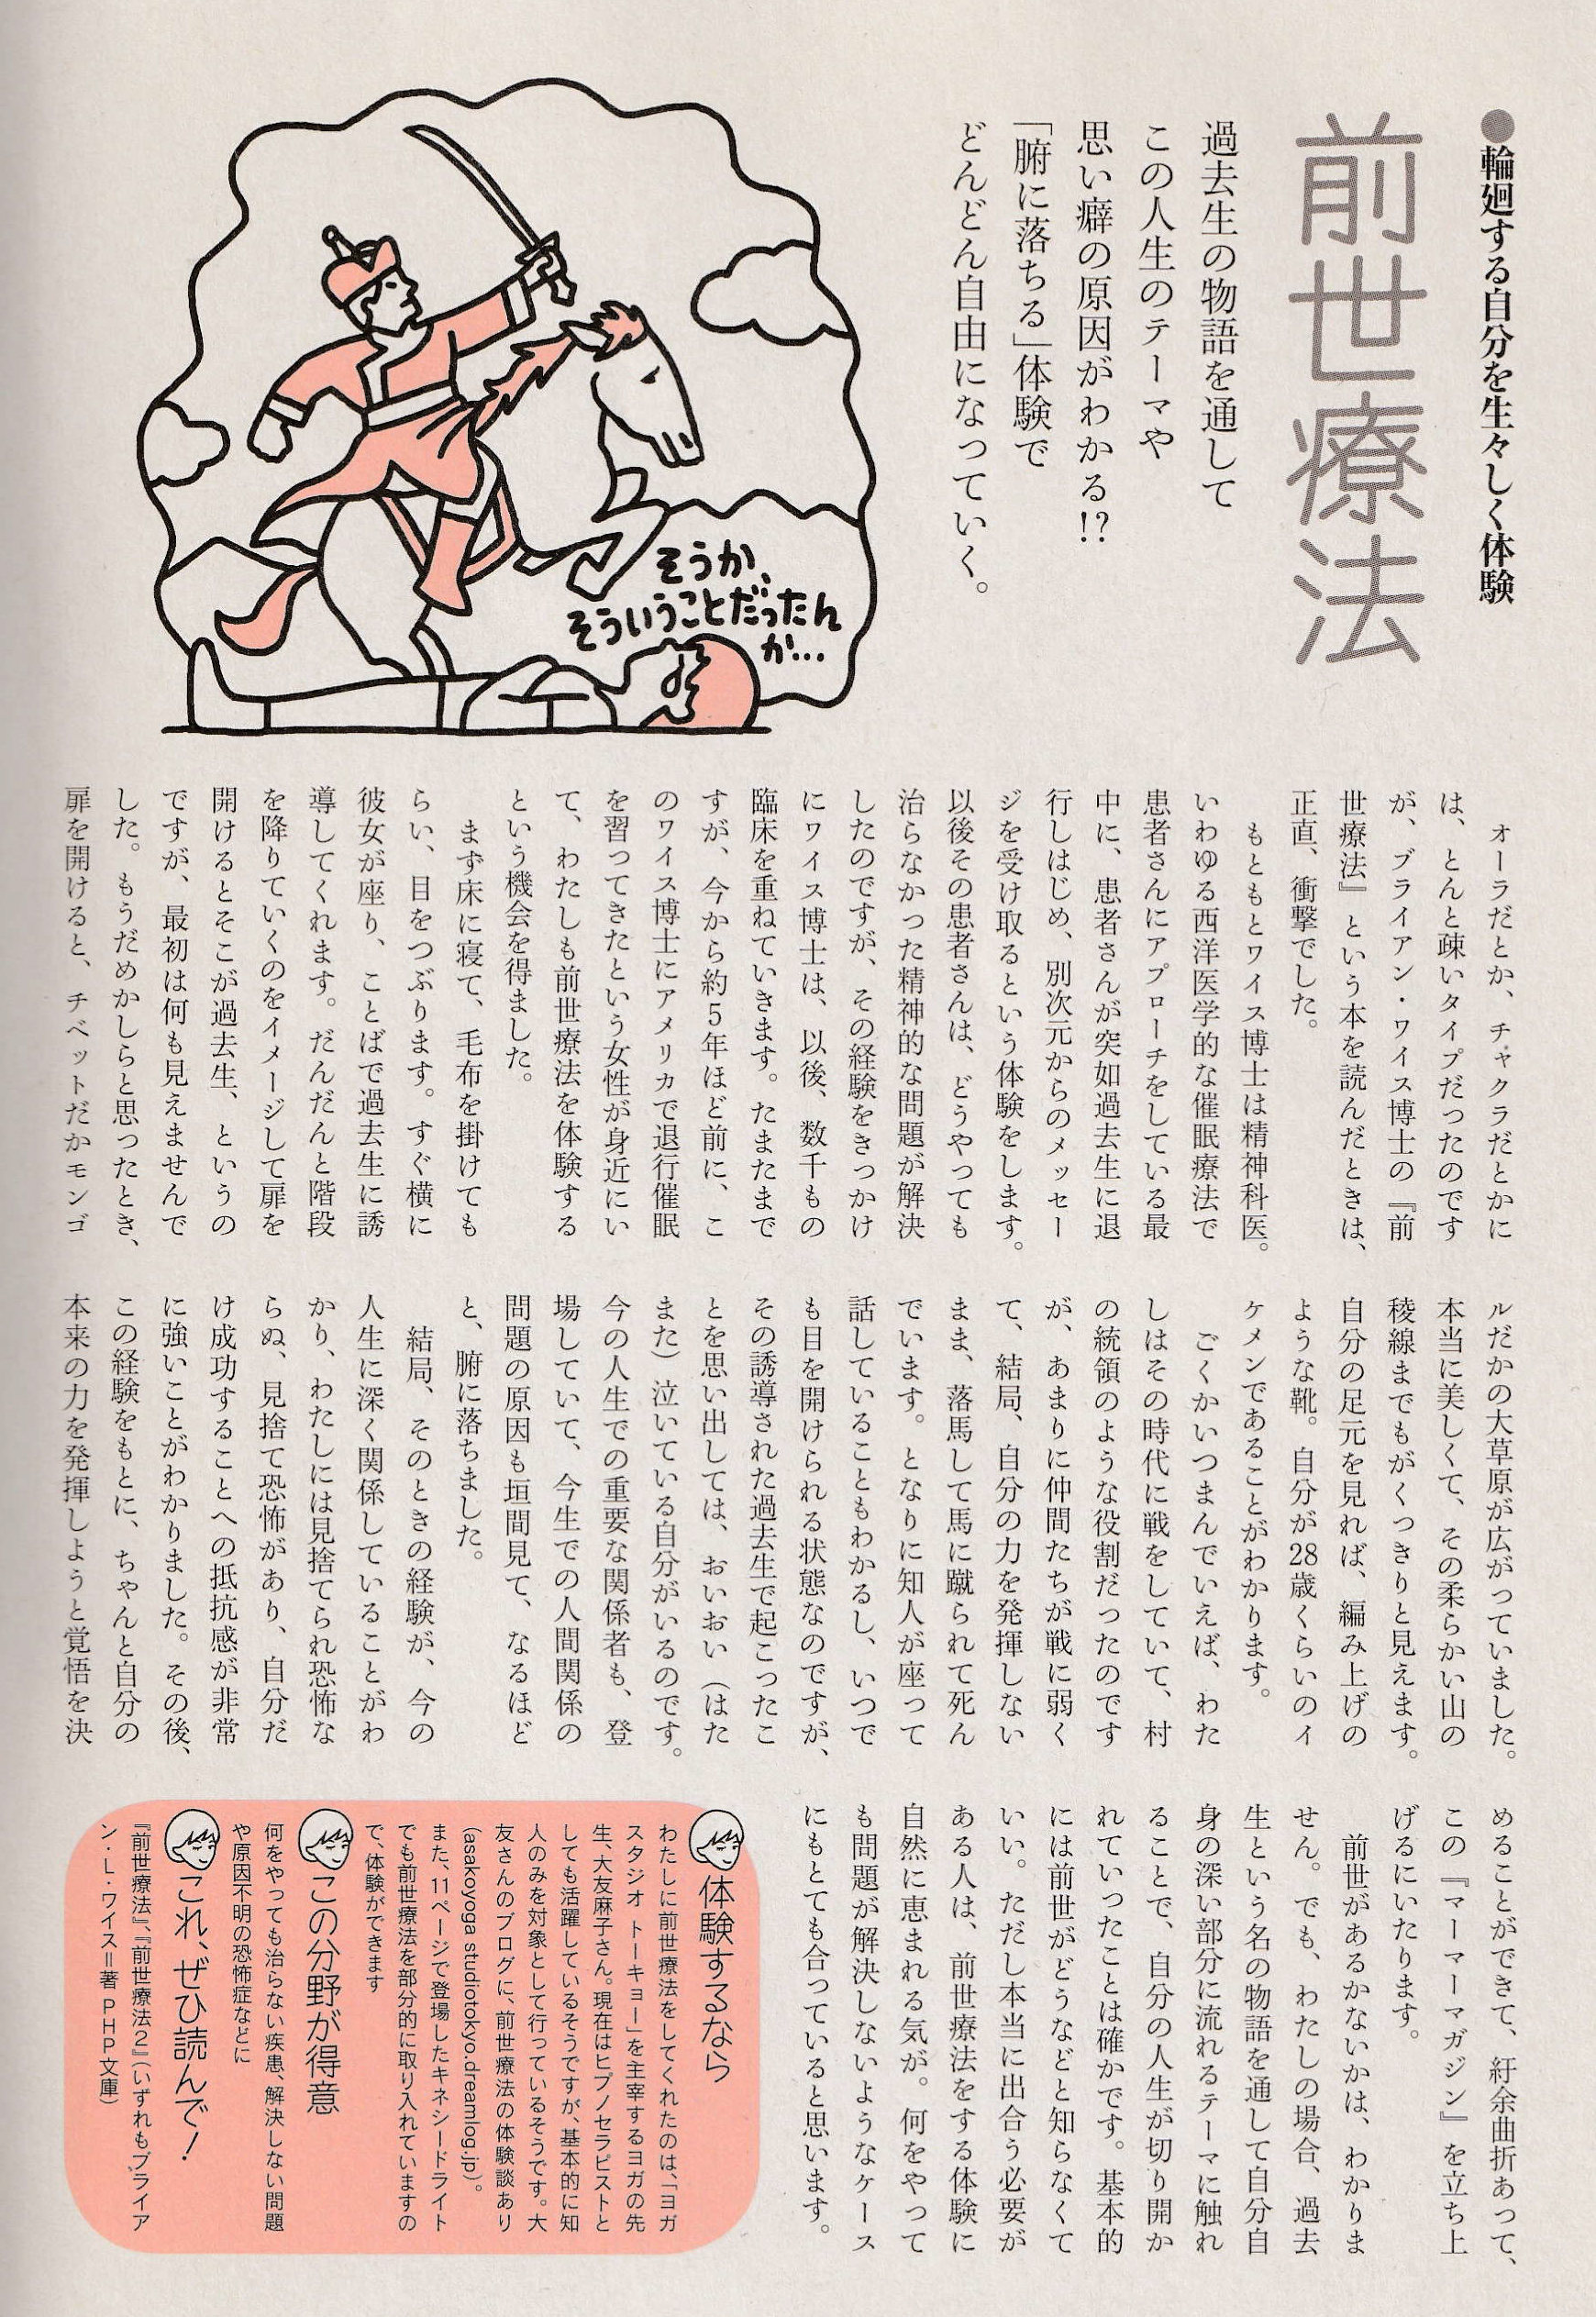 ●輪廻する自分を生々しく体験
前世療法
過去生の物語を通して
この人生のテーマや
思い癖の原因がわかる!?
「腑に落ちる」体験で
どんどん自由になっていく。
そうか、
そういうことだったん
か…
オーラだとか、チャクラだとかに
は、とんと疎いタイプだったのです
が、ブライアン・ワイス博士の『前
世療法』という本を読んだときは、
正直、衝撃でした。
もともとワイス博士は精神科医。
いわゆる西洋医学的な催眠療法で
患者さんにアプローチをしている最
中に、患者さんが突如過去生に退
行しはじめ、別次元からのメッセー
ジを受け取るという体験をします。
以後その患者さんは、どうやっても
治らなかった精神的な問題が解決
したのですが、その経験をきっかけ
にワイス博士は、以後、数千もの
臨床を重ねていきます。たまたまで
すが、今から約5年ほど前に、こ
のワイス博士にアメリカで退行催眠
を習ってきたという女性が身近にい
て、わたしも前世療法を体験する
という機会を得ました。
まず床に寝て、毛布を掛けても
らい、目をつぶります。すぐ横に
彼女が座り、ことばで過去生に誘
導してくれます。だんだんと階段
を降りていくのをイメージして扉を
開けるとそこが過去生、というの
ですが、最初は何も見えませんで
した。もうだめかしらと思ったとき、
扉を開けると、チベットだかモンゴ
ルだかの大草原が広がっていました。
本当に美しくて、その柔らかい山の
稜線までもがくっきりと見えます。
自分の足元を見れば、編み上げの
ような靴。自分が28歳くらいのイ
ケメンであることがわかります。
ごくかいつまんでいえば、わた
しはその時代に戦をしていて、村
の統領のような役割だったのです
が、あまりに仲間たちが戦に弱く
て、結局、自分の力を発揮しない
まま、落馬して馬に蹴られて死ん
でいます。となりに知人が座って
話していることもわかるし、いつで
も目を開けられる状態なのですが、
その誘導された過去生で起こったこ
とを思い出しては、おいおい(はた
また)泣いている自分がいるのです。
今の人生での重要な関係者も、登
場していて、今生での人間関係の
問題の原因も垣間見て、なるほど
と、腑に落ちました。
結局、そのときの経験が、今の
人生に深く関係していることがわ
かり、わたしには見捨てられ恐怖な
らぬ、見捨て恐怖があり、自分だ
け成功することへの抵抗感が非常
に強いことがわかりました。その後、
この経験をもとに、ちゃんと自分の
本来の力を発揮しようと覚悟を決
めることができて、紆余曲折あって、
この『マーマーマガジン』を立ち上
げるにいたります。
前世があるかないかは、わかりま
せん。でも、わたしの場合、過去
生という名の物語を通して自分自
身の深い部分に流れるテーマに触れ
ることで、自分の人生が切り開か
れていったことは確かです。基本的
には前世がどうなどと知らなくて
いい。ただし本当に出合う必要が
ある人は、前世療法をする体験に
自然に恵まれる気が。何をやって
も問題が解決しないようなケース
にもとても合っていると思います。
体験するなら
わたしに前世療法をしてくれたのは、「ヨガ
スタジオ トーキョー」を主宰するヨガの先
生、大友麻子さん。現在はヒプノセラピストと
しても活躍しているそうですが、基本的に知
人のみを対象として行っているそうです。大
友さんのブログに、前世療法の体験談あり
(asakoyoga studiotokyo.dreamlog.jp)。
また、11ページで登場したキネシードライト
でも前世療法を部分的に取り入れていますの
で、体験ができます
この分野が得意
何をやっても治らない疾患、解決しない問題
や原因不明の恐怖症などに
これ、ぜひ読んで!
『前世療法』、『前世療法2』(いずれもブライア
ン・L・ワイス=著 PHP文庫)